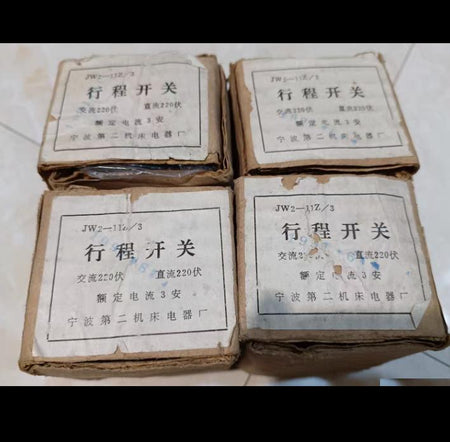 JW2—11Z/3
行程开关
交流220伏 直流220伏
额定电流3安
宁波第二机床电器厂
JW2—11Z/
行程开关
交流220伏 直流220伏
额定电流3安
宁波第二机床电器厂
JW2—11Z/3
行程开关
交流220伏 直流220伏
额定电流3安
宁波第二机床电器厂
JW2—11Z/3
行程开关
交流2 伏 直流220伏
额定电流3安
宁波第二机床电器厂